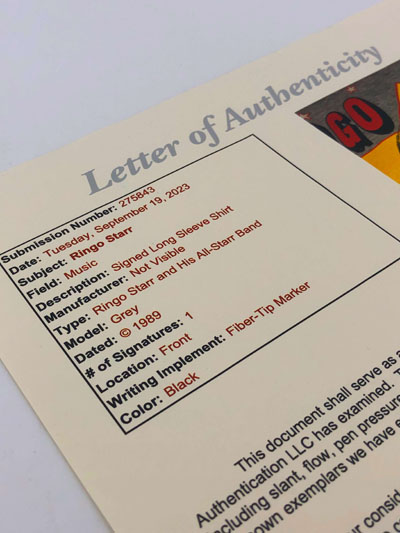 Letter of Authenticity
GO
Submission Number: 275843
Date: Tuesday, September 19, 2023
Subject: Ringo Starr
Field: Music
Description: Signed Long Sleeve Shirt
Manufacturer: Not Visible
Type: Ringo Starr and His All-Starr Band
Model: Grey
Dated: © 1989
# of Signatures: 1
Location: Front
Writing Implement: Fiber-Tip Marker
Color: Black
This document shall serve as a
Authentication LLC has examined.
including slant, flow, pen pressure
own exemplars we have e
our consid